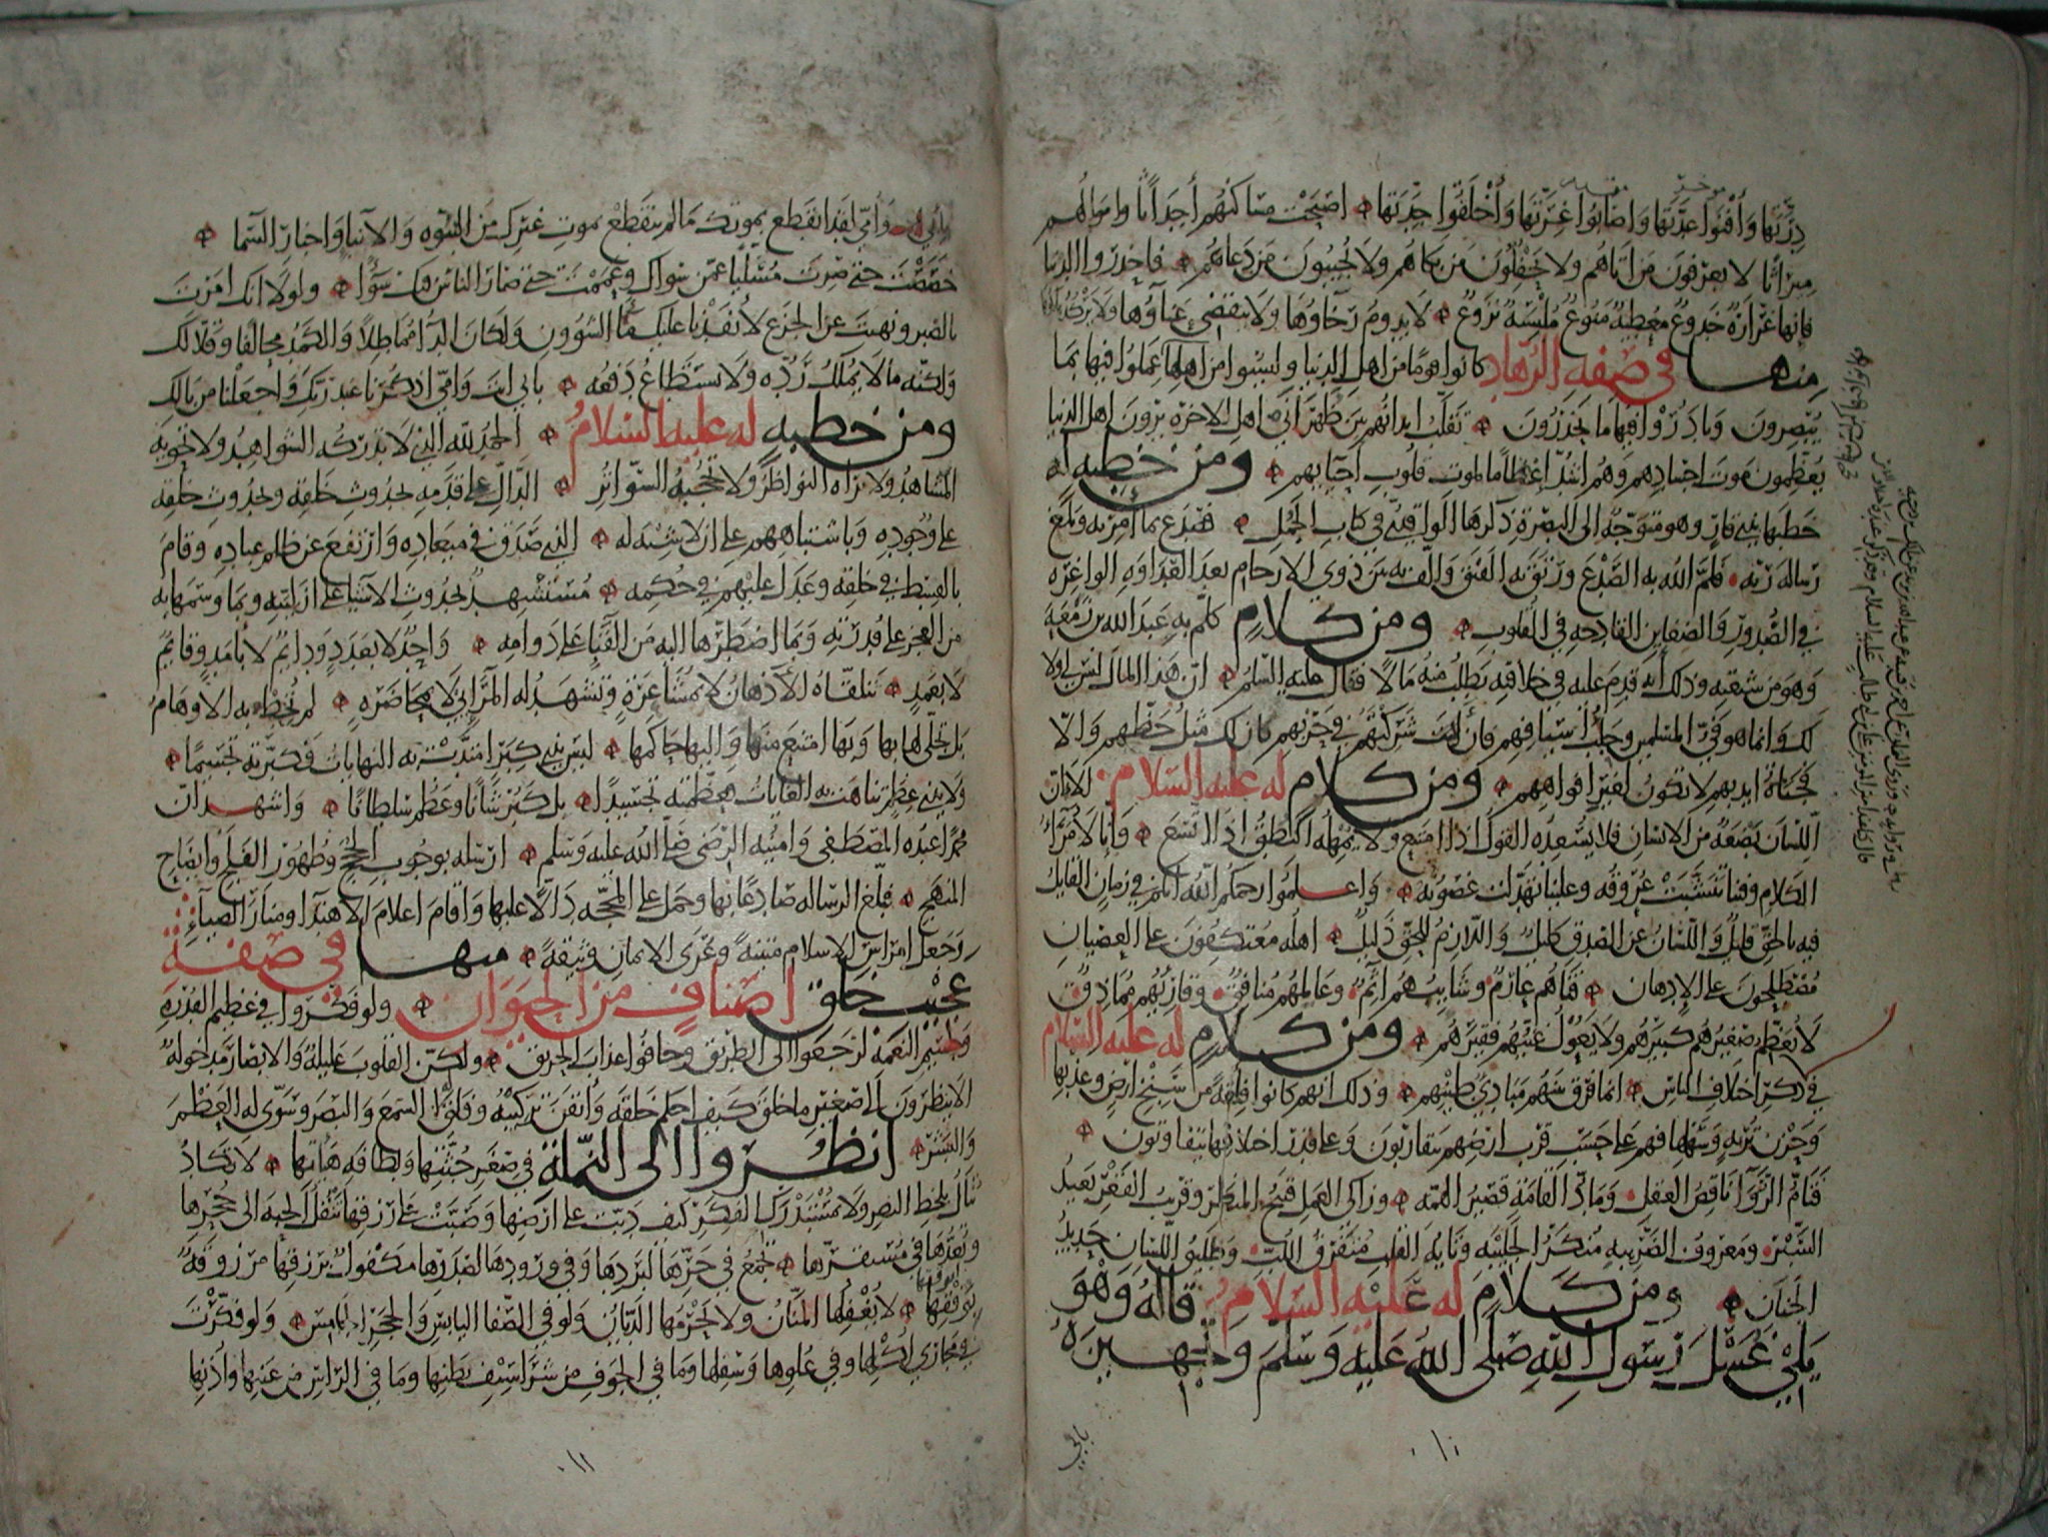 دِرَّتَها وَأَفْنَوْا عِدَّتَها وَاصَابُوا غِرَّتَها وَأَخْلَقُوا جِدَّتَها اصبَحَت مَسَاكنُهُم أَجدَاثًا وامْوَالُهُم
مِيرَاثًا لا يعرفونَ مَن اتاهُم ولا يَحْفِلُونَ مَن بكاهُم ولا يُجيبُون مَن دَعاهُم فاحذرُوا الدنيا
فإنها غَرَّارَةٌ خَدُوعٌ مُعْطِيَةٌ مَنُوعٌ مُلْبِسَةٌ نَزُوعٌ لا يدومُ رَخَاؤُهَا ولا ينقضي عَناؤُها ولا يَركُدُ بلاؤها
منها في صفة الزهّاد كانوا قومًا من اهل الدنيا وليسُوا من اهلها عَمِلُوا فيها بما
يُبصِرون وبادَرُوا فيها ما يحذَرُون تقلّبُ ابدانُهم بين ظهرَانَي اهل الاخرة يرَونَ اهل الدنيا
يُعَظِّمُون مَوت اجسادِهم وهُم اشدُّ إعظامًا لموت قلوب احيائهم ومن خطبة له
خطبها بذي قارٍ وهو متوجّه الى البَصْرة ذكرها الواقديّ في كتاب الجمل فصَدَع بما أُمِرَ به وبلّغ
رسالة ربّه فلَمَّ الله به الصَّدْعَ ورَتَقَ به الفَتْقَ وألّف به بين ذوي الارحام بعد العَداوة الواغرة
في الصُّدُورِ والضغاين القادحة في القلوب ومن كلامٍ كلّم به عبد الله بن زمعة
وهو من شيعته وذلك أنّه قدِم عليه في خلافته يطلب منهُ مَالًا فقال عليه السلم انّ هذا المال ليس لي ولا
لك وانما هو فيءُ المسلمين وجَلبُ أسيافهم فان شَرِكتَهُم في حربهم كان لك مثلُ حَظّهم وإلّا
فجَناةُ ايديهم لا تكون لغير افواههم ومن كلام له عليه السلام الا إن
اللسان بَضعَةٌ من الانسان فلا يُسعِدُه القول اذا امتنع ولا يُمهِلُه النطق اذا اتسع وانّا لأمراءُ
الكلام وفينا تنشّبت عُروقه وعلينا تهدّلت غصونه واعلموا رحمكم الله أنّكم في زمان القايلُ
فيه بالحقّ قليلٌ واللسانُ عن الصدق كليلٌ واللازمُ للحقّ ذليلٌ اهله معتكفون على العصيان
مُصْطلِحون على الإدهان فتاهُم عارِمٌ وشايبُهُم اثمٌ وعَالِمُهُم منافقٌ وقاريهم مُماذِقٌ
لا يُعَظّم صغيرهم كبيرهم ولا يَعُولُ غنيُّهم فقيرَهُم ومن كلامٍ له عليه السلام
في ذكر اختلاف الناس انما فرّق بينهم مبادئُ طينِهم وذلك انهم كانوا فِلْقَةً من سَبَخ ارضٍ وعذبها
وحَزن تربةٍ وسهلها فهم على حَسَب قرب ارضهم يتقاربون وعلى قدر اختلافها يتفاوتون
فتامُّ الرُّواءِ ناقصُ العقل ومادّ القامة قصير الهمّة وزاكي العمل قبيح المنظر وقريب القعر بعيدُ
السَّبْر ومعروف الضريبة منكر الجليبة وتايهُ القلب متفرّق اللبّ وطليق اللسان حديدُ
الجَنان ومن كلامٍ له عليه السلام قاله وهو
يلي غسل رسول الله صلى الله عليه وسلم وتجهيزه
بابي
٠١٠
بأبي انت وأمّي لقد انقطع بموتك ما لم ينقطع بموت غيرك من النبوّة والانبا واخبار السّما
خَصّصْتَ حتى صرت مُسَلّيًا عمّن سواك وعمّمت حتى صار الناس فيك سَوَآءً ولولا انك امرت
بالصبر ونهيت عن الجزع لأنفدنا عليك ماء الشؤون ولكان الداء مماطلًا والكمد محالفًا وقلّا لك
ولكنّه ما لا يُملك ردُّه ولا يستطاع دفعه بابي انت وامّي اذكرنا عند ربّك واجعلنا من بالك
ومن خطبةٍ له عليه السلام الحمد لله الذي لا تدركه الشواهد ولا تحويه
المشاهد ولا تراه النواظر ولا تحجبه السّواتر الدّالّ على قدمه بحدوث خلقه وبحدوث خلقه
على وجوده وباشتباههم على ان لا شبه له الذي صدق في ميعاده وارتفع عن ظلم عباده وقام
بالقسط في خلقه وعدل عليهم في حكمه مستشهدٌ بحدوث الاشياء على ازليته وبما وسمها به
من العجز على قدرته وبما اضطرّها اليه من الفَناء على دوامه واحدٌ لا بعدد ودايمٌ لا بأمد وقايمٌ
لا بعمد تتلقّاه الاذهان لا بمُشاعرة وتشهد له المرائي لا بمحاضرة لم تُحط به الاوهام
بل تجلّى لها بها وبها امتنع منها واليها حاكمها ليس بذي كبر امتدّت به النهايات فكبّرته تجسيمًا
ولا بذي عظم تناهت به الغايات فعظّمته تجسيدًا بل كبر شأنًا وعظُم سلطانًا واشهد انّ
محمدًا عبده المصطفى وامينه الرضى صلى الله عليه وسلم ارسله بوجوب الحجج وظهور الفلج وايضاح
المنهج فبلّغ الرسالة صادعًا بها وحمل على المحجّة دالًّا عليها واقام اعلام الاهتدا ومنار الضياء
وجعل امراس الاسلام متينةً وعُرى الايمان وثيقةً منها في صفة
عجيب خلق اصنافٍ من الحيوان ولو فكّروا في عظيم القدرة
وجسيم النعمة لرجعوا الى الطريق وخافوا عذاب الحريق ولكن القلوب عليلة والابصار مدخولة
الا ينظرون الى صغير ما خلق كيف احكم خلقه وأتقن تركيبه وفلق له السمع والبصر وسوّى له العظم
والبشر انظروا الى النملة في صغر جثّتها ولطافة هيأتها لا تكاد
تُنال بلحظ البصر ولا بمُستدرك الفكر كيف دبّت على ارضها وصبّت على رزقها تنقل الحبّة الى جُحرها
وتُعدّها في مستقرّها تجمع في حرّها لبردها وفي وِردها لصَدَرها مكفول برزقها مرزوقةٌ
بوفقها لا يُغفلها المنّان ولا يحرمها الديّان ولو في الصّفا اليابس والحجر الجامس ولو فكّرتَ
في مجاري اُكلها وفي عُلوها وسفلها وما في الجوف من شراسيف بطنها وما في الراس من عينها وأذنها
٠١١